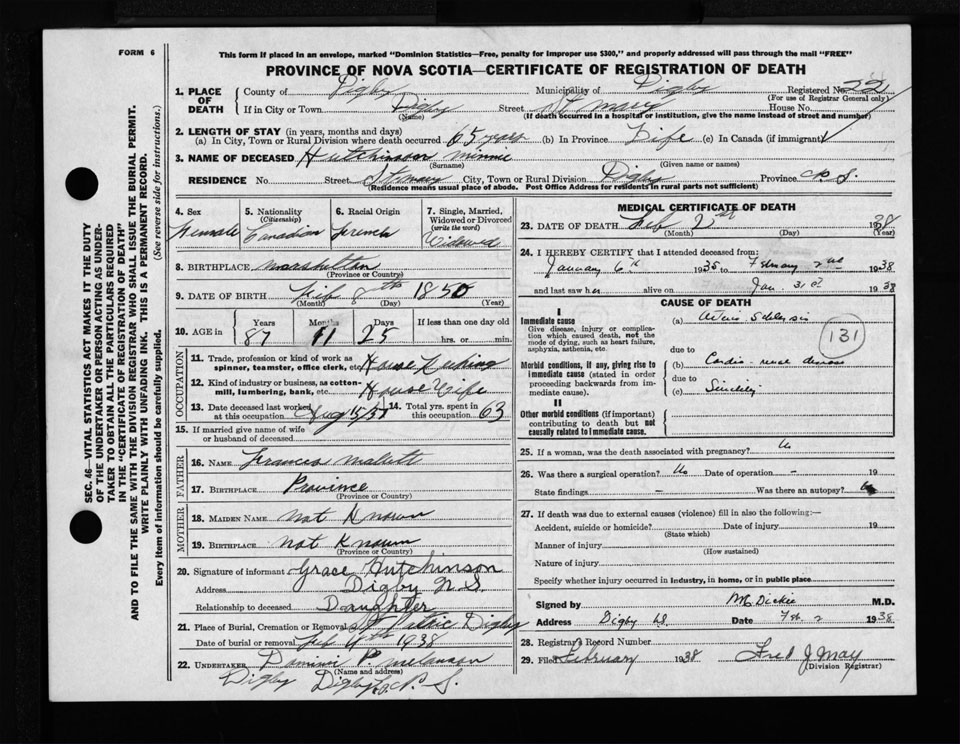 FORM 6
This form if placed in an envelope, marked "Dominion Statistics—Free, penalty for improper use $300," and properly addressed will pass through the mail "FREE"
PROVINCE OF NOVA SCOTIA—CERTIFICATE OF REGISTRATION OF DEATH
1. PLACE OF DEATH
County of Digby Municipality of Digby Registered No. 22
(For use of Registrar General only)
If in City or Town Digby Street St Mary House No.
(Name) (If death occurred in a hospital or institution, give the name instead of street and number)
2. LENGTH OF STAY (in years, months and days)
(a) In City, Town or Rural Division where death occurred 65 years (b) In Province Life (c) In Canada (if immigrant)
3. NAME OF DECEASED Hutchinson Minnie
(Surname) (Given name or names)
RESIDENCE No. Street St Mary City, Town or Rural Division Digby Province N. S.
(Residence means usual place of abode. Post Office Address for residents in rural parts not sufficient)
4. Sex
Female
5. Nationality
(Citizenship)
Canadian
6. Racial Origin
French
7. Single, Married, Widowed or Divorced
(write the word)
Widowed
8. BIRTHPLACE Marshalltown
(Province or Country)
9. DATE OF BIRTH Feb 8th 1850
(Month) (Day) (Year)
10. AGE in Years Months Days If less than one day old
87 11 25 hrs. or min.
OCCUPATION
11. Trade, profession or kind of work as spinner, teamster, office clerk, etc. House Keeping
12. Kind of industry or business, as cotton-mill, lumbering, bank, etc. House Wife
13. Date deceased last worked at this occupation Aug
14. Total yrs. spent in this occupation 63
15. If married give name of wife or husband of deceased
FATHER
16. NAME Frances
17. BIRTHPLACE Province
(Province or Country)
MOTHER
18. MAIDEN NAME Not Known
19. BIRTHPLACE Not Known
(Province or Country)
20. Signature of informant Grace Hutchinson
Address Digby N.S.
Relationship to deceased Daughter
21. Place of Burial, Cremation or Removal Digby
Date of burial or removal Feb 4th 1938
22. UNDERTAKER Dominic P. Melanson
(Name and address)
Digby Digby Co. N. S.
MEDICAL CERTIFICATE OF DEATH
23. DATE OF DEATH Feb 2nd 1938
(Month) (Day) (Year)
24. I HEREBY CERTIFY that I attended deceased from:
January 6th 1935 to February 2nd 1938
and last saw her alive on Jan. 31st 1938
CAUSE OF DEATH
I
Immediate cause
Give disease, injury or complication which caused death, not the mode of dying, such as heart failure, asphyxia, asthenia, etc.
(a) Arterio Sclerosis
131
due to
Morbid conditions, if any, giving rise to immediate cause (stated in order proceeding backwards from immediate cause).
(b) Cardio-renal disease
due to
(c) Senility
II
Other morbid conditions (if important) contributing to death but not causally related to immediate cause.
25. If a woman, was the death associated with pregnancy? No
26. Was there a surgical operation? No Date of operation - 19
State findings - Was there an autopsy? No
27. If death was due to external causes (violence) fill in also the following:—
Accident, suicide or homicide? Date of injury 19
(State which)
Manner of injury
(How sustained)
Nature of injury
Specify whether injury occurred in industry, in home, or in public place
Signed by Dickie M.D.
Address Digby NS Date Feb. 2 1938
28. Registrar's Record Number
29. Filed February 1938 Fred J. May
(Division Registrar)
SEC. 46—VITAL STATISTICS ACT MAKES IT THE DUTY
OF THE UNDERTAKER OR PERSON ACTING AS UNDER-
TAKER TO OBTAIN ALL THE PARTICULARS REQUIRED
IN THE "CERTIFICATE OF REGISTRATION OF DEATH"
AND TO FILE THE SAME WITH THE DIVISION REGISTRAR WHO SHALL ISSUE THE BURIAL PERMIT.
WRITE PLAINLY WITH UNFADING INK. THIS IS A PERMANENT RECORD.
Every item of information should be carefully supplied. (See reverse side for instructions.)